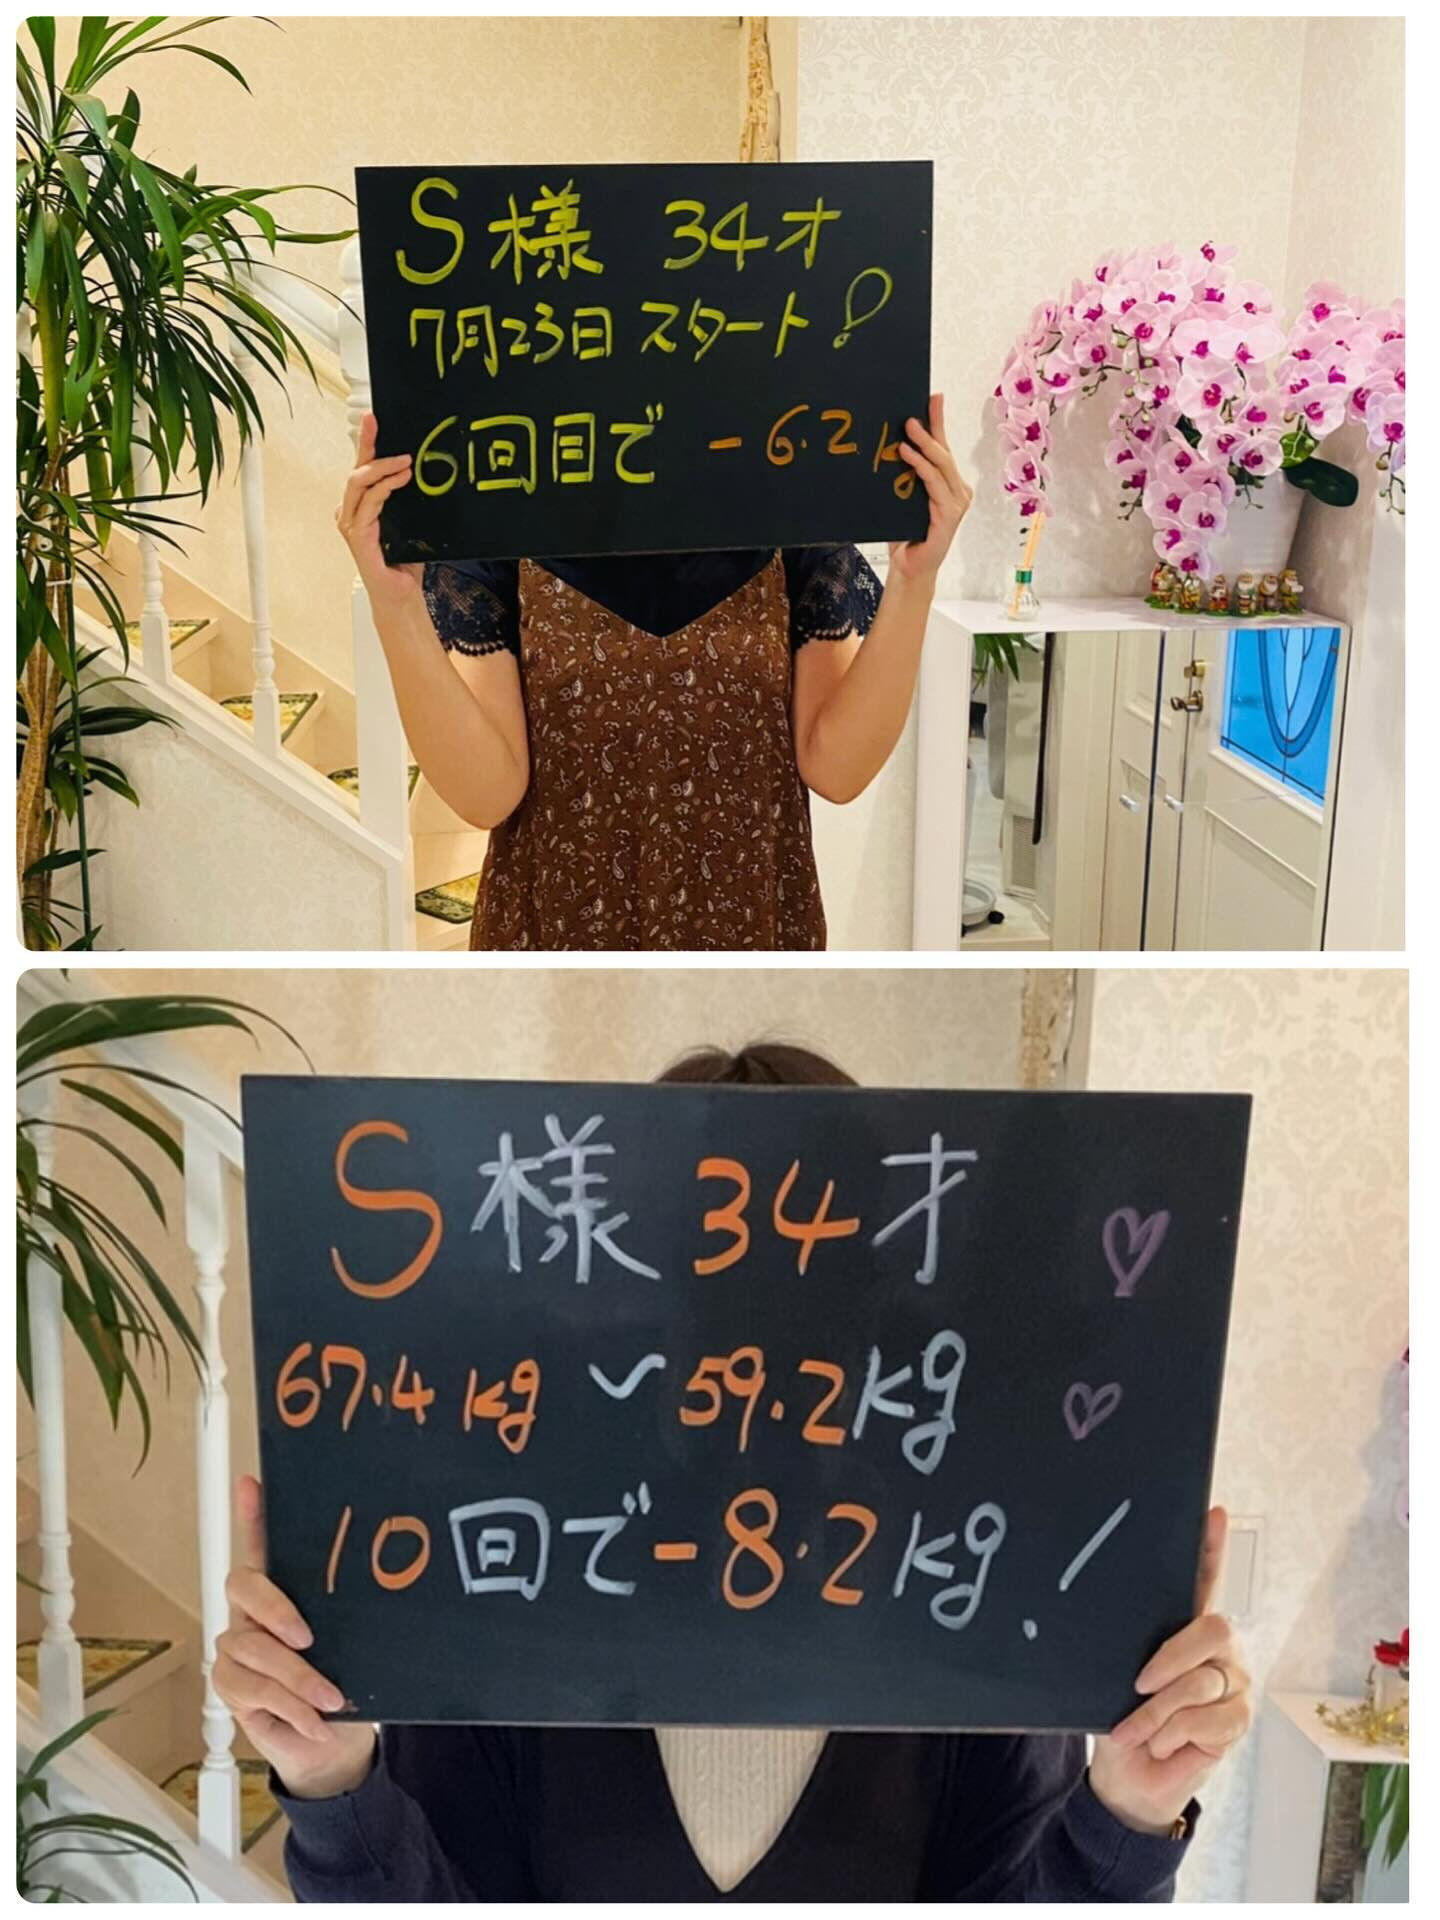 S様 34才
7月23日 スタート!
6回目で -6.2kg
S様 34才
67.4kg〜59.2kg
10回で-8.2kg!